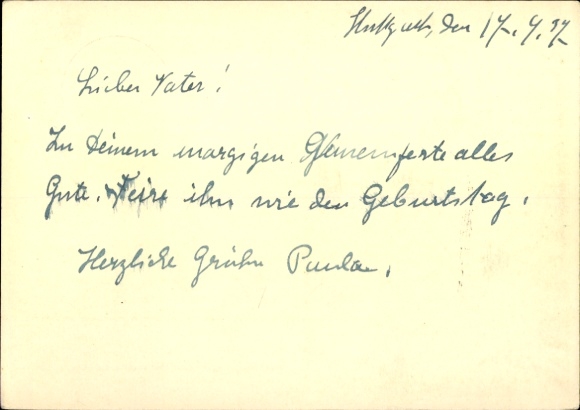 Stuttgart, den 17. 4. 37
Lieber Vater!
Zu Deinem morgigen Ehrenfeste alles
Gute. Feire ihn wie den Geburtstag.
Herzliche Grüße Paula.